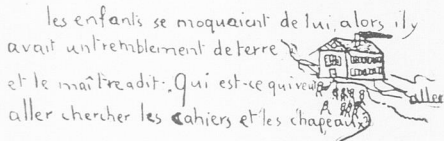 les enfants se moquaient de lui, alors il y
avait un tremblement de terre
et le maître a dit. Qui est-ce qui veut
aller
aller chercher les cahiers et les chapeaux?